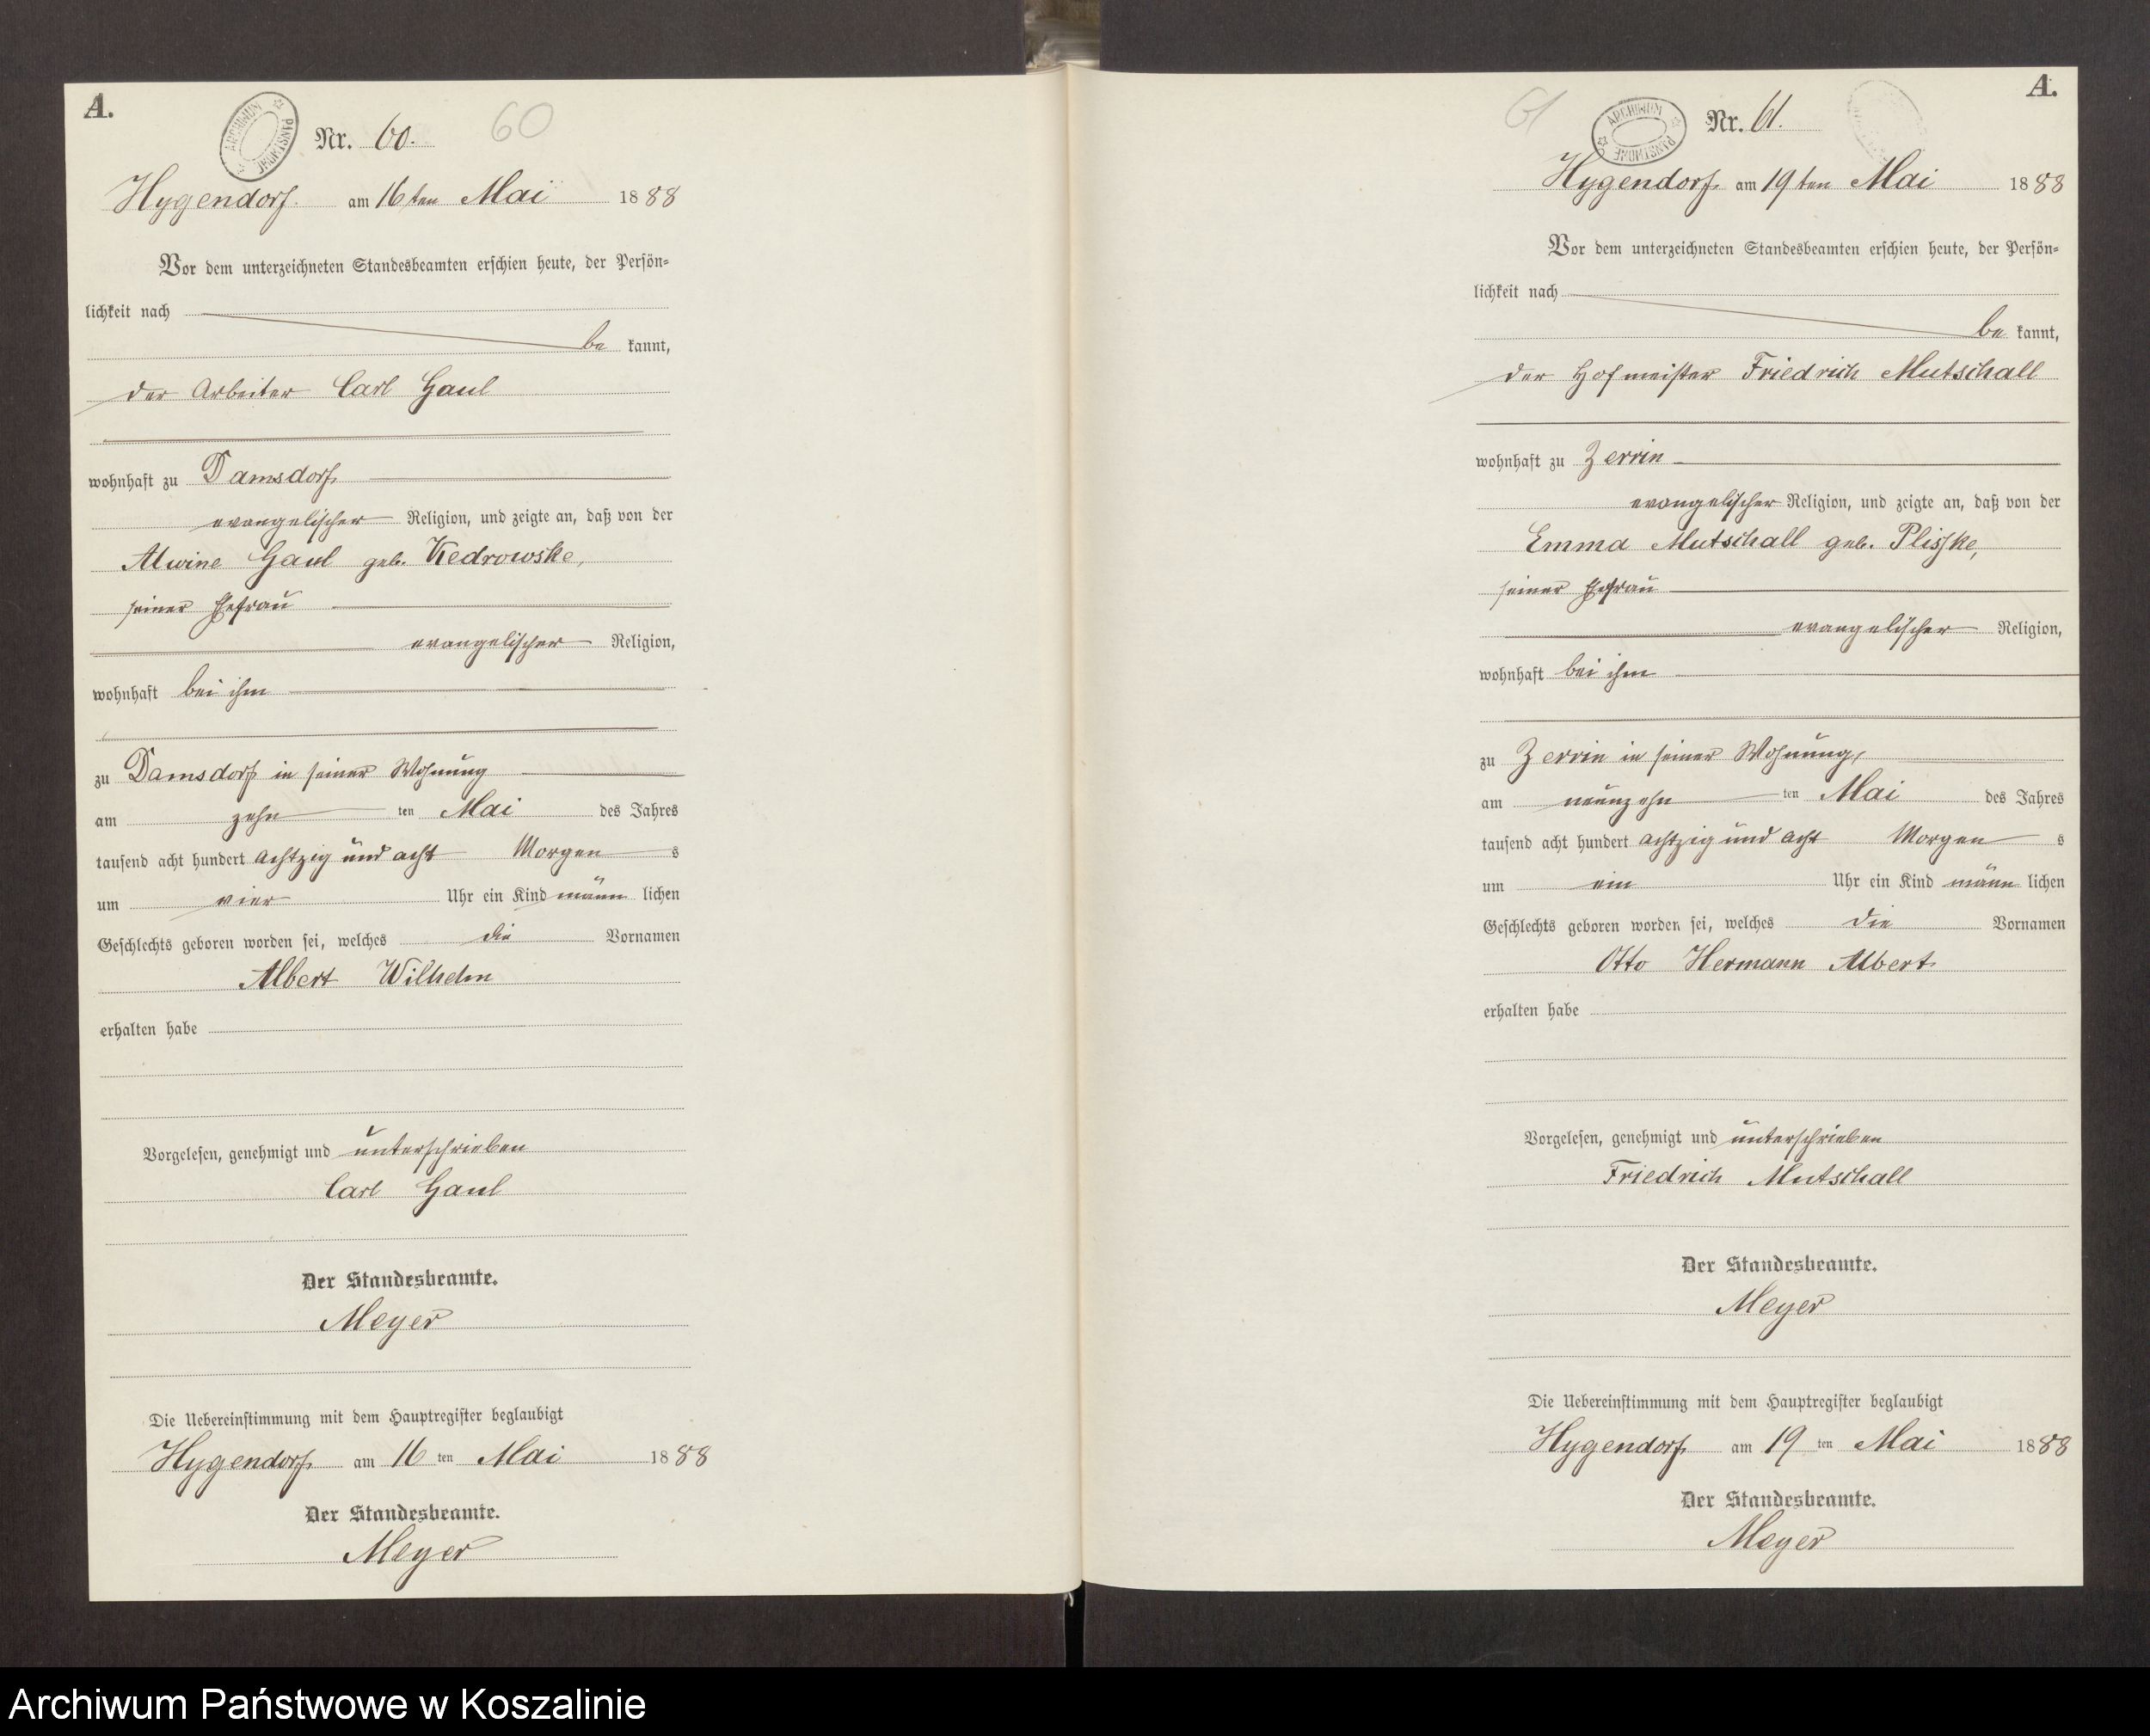 A.
ARCHIWUM PAŃSTWOWE
Nr. 60. 60
Hygendorf am 16ten Mai 1888
Vor dem unterzeichneten Standesbeamten erschien heute, der Persön-
lichkeit nach
be kannt,
der Arbeiter Carl Gaul
wohnhaft zu Damsdorf
evangelischer Religion, und zeigte an, daß von der
Alwine Gaul geb. Kedrowske,
seiner Ehefrau
evangelischer Religion,
wohnhaft bei ihm
zu Damsdorf in seiner Wohnung
am zehn ten Mai des Jahres
tausend acht hundert achtzig und acht Morgen s
um vier Uhr ein Kind männ lichen
Geschlechts geboren worden sei, welches die Vornamen
Albert Wilhelm
erhalten habe
Vorgelesen, genehmigt und unterschrieben
Carl Gaul
Der Standesbeamte.
Meyer
Die Uebereinstimmung mit dem Hauptregister beglaubigt
Hygendorf am 16 ten Mai 1888
Der Standesbeamte.
Meyer
A.
61 ARCHIWUM PAŃSTWOWE
Nr. 61.
Hygendorf am 19ten Mai 1888
Vor dem unterzeichneten Standesbeamten erschien heute, der Persön-
lichkeit nach
be kannt,
der Hofmeister Friedrich Mutschall
wohnhaft zu Zerrin
evangelischer Religion, und zeigte an, daß von der
Emma Mutschall geb. Plisske,
seiner Ehefrau
evangelischer Religion,
wohnhaft bei ihm
zu Zerrin in seiner Wohnung,
am neunzehn ten Mai des Jahres
tausend acht hundert achtzig und acht Morgen s
um ein Uhr ein Kind männ lichen
Geschlechts geboren worden sei, welches die Vornamen
Otto Hermann Albert
erhalten habe
Vorgelesen, genehmigt und unterschrieben
Friedrich Mutschall
Der Standesbeamte.
Meyer
Die Uebereinstimmung mit dem Hauptregister beglaubigt
Hygendorf am 19 ten Mai 1888
Der Standesbeamte.
Meyer
Archiwum Państwowe w Koszalinie